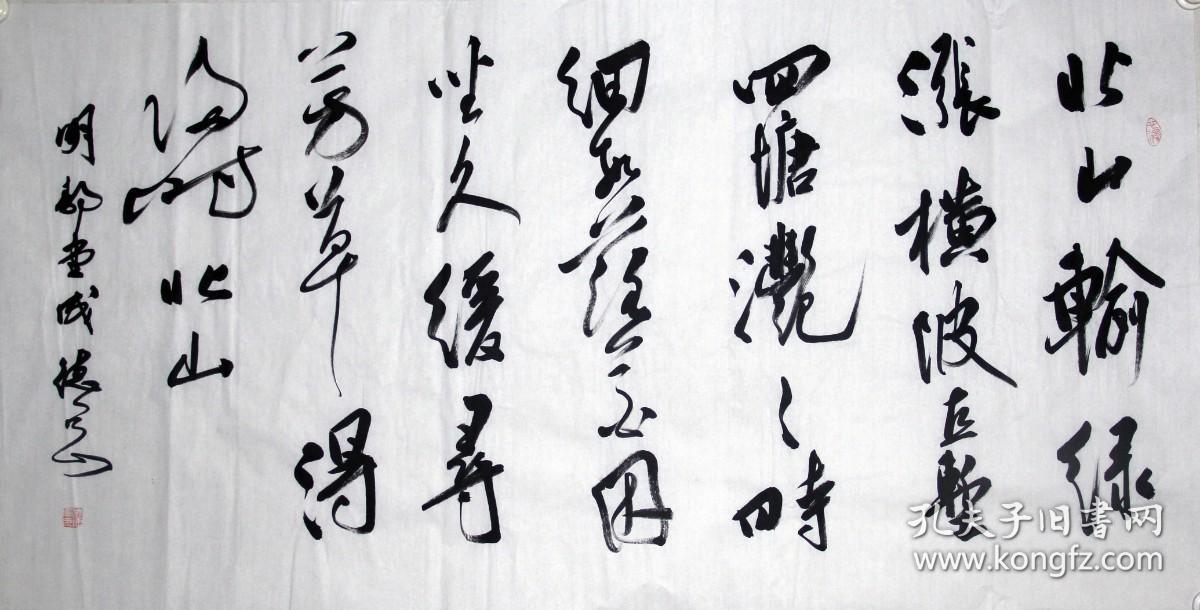 北山輸緑
漲橫陂直塹
回塘灧々時
細數落花因
坐久緩尋
芳草得
歸遲北山
明都堂
孔夫子旧书网
www.kongfz.com